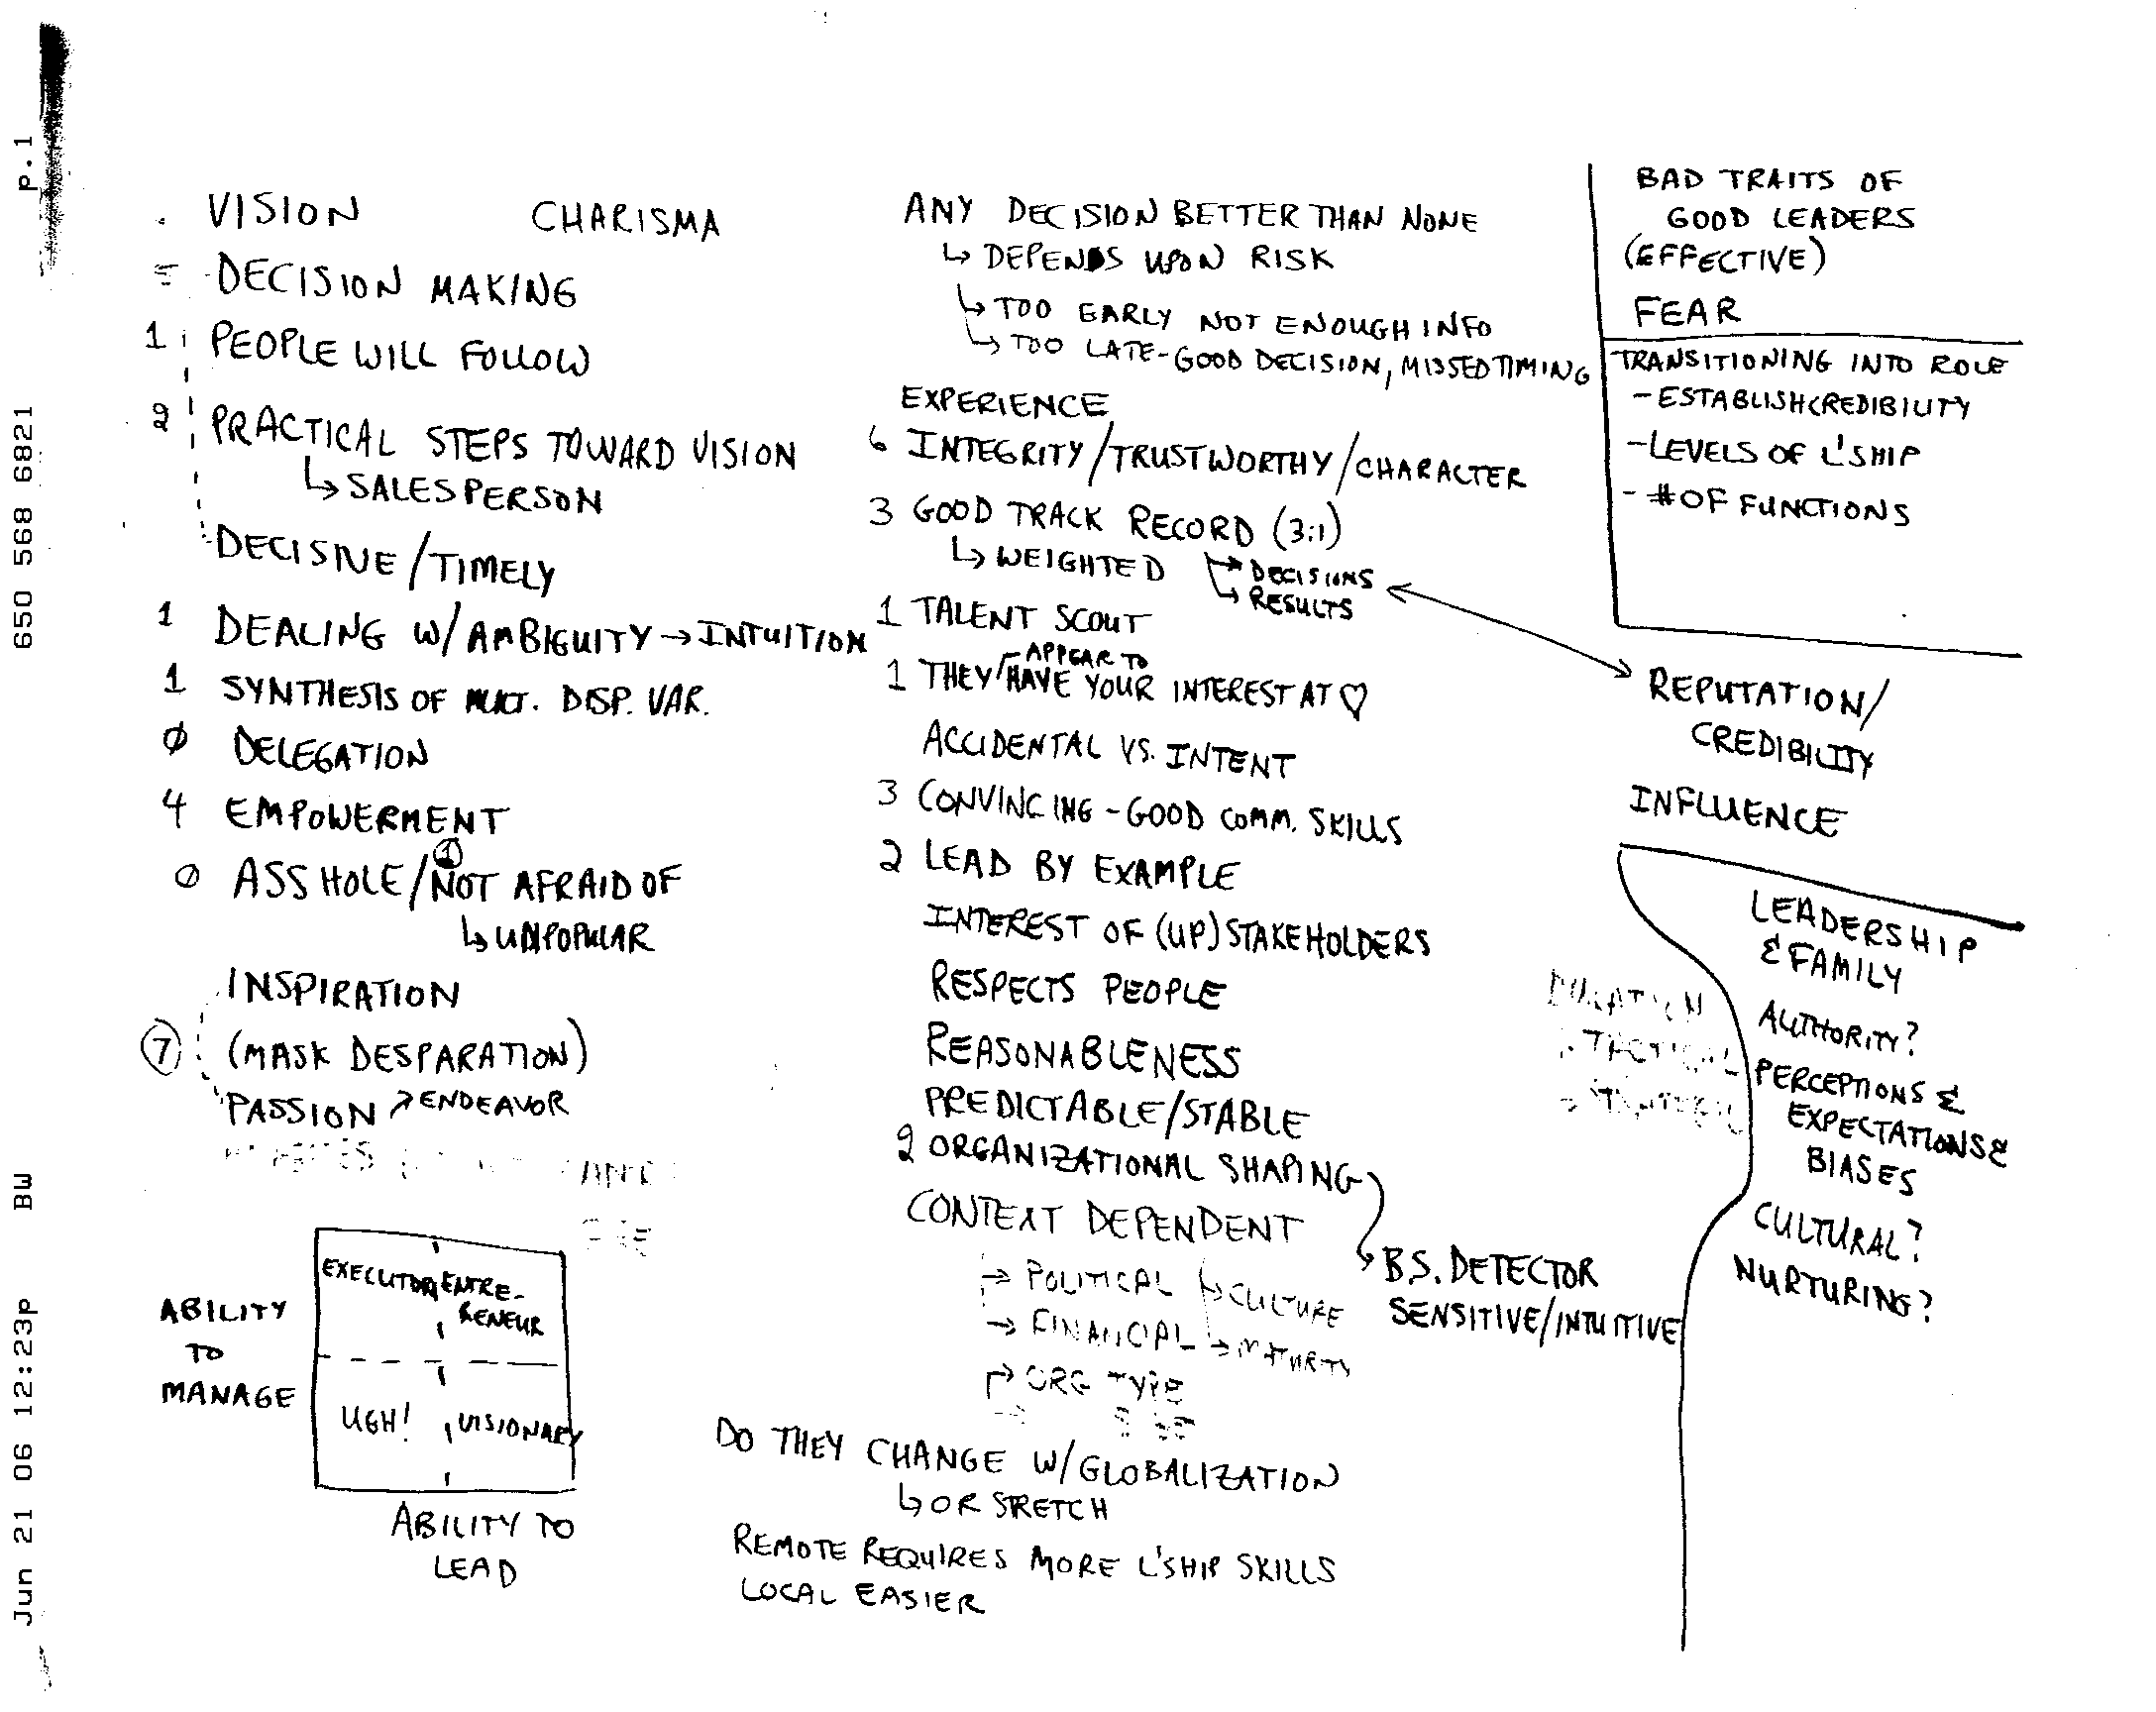 P.1
650 568 6821
BW
Jun 21 06 12:23p
VISION
CHARISMA
= DECISION MAKING
1 PEOPLE WILL FOLLOW
2 PRACTICAL STEPS TOWARD VISION
↳ SALESPERSON
DECISIVE/TIMELY
1 DEALING W/ AMBIGUITY → INTUITION
1 SYNTHESIS OF MULT. DISP. VAR.
Ø DELEGATION
4 EMPOWERMENT
Ø ASSHOLE/NOT AFRAID OF
①
↳ UNPOPULAR
INSPIRATION
⑦ (MASK DESPARATION)
PASSION ↗ ENDEAVOR
EXECUTOR
ENTRE-
RENEUR
UGH!
VISIONARY
ABILITY
TO
MANAGE
ABILITY TO
LEAD
ANY DECISION BETTER THAN NONE
↳ DEPENDS UPON RISK
↳ TOO EARLY NOT ENOUGH INFO
↳ TOO LATE - GOOD DECISION, MISSED TIMING
EXPERIENCE
6 INTEGRITY/TRUSTWORTHY/CHARACTER
3 GOOD TRACK RECORD (3:1)
↳ WEIGHTED
→ DECISIONS
↳ RESULTS
1 TALENT SCOUT
APPEAR TO
1 THEY HAVE YOUR INTEREST AT ♡
ACCIDENTAL VS. INTENT
3 CONVINCING - GOOD COMM. SKILLS
2 LEAD BY EXAMPLE
INTEREST OF (UP) STAKEHOLDERS
RESPECTS PEOPLE
REASONABLENESS
PREDICTABLE/STABLE
2 ORGANIZATIONAL SHAPING
CONTEXT DEPENDENT
→ POLITICAL
→ CULTURE
→ FINANCIAL
→ MATURITY
→ ORG TYPE
B.S. DETECTOR
SENSITIVE/INTUITIVE
DO THEY CHANGE W/ GLOBALIZATION
↳ OR STRETCH
REMOTE REQUIRES MORE L'SHIP SKILLS
LOCAL EASIER
BAD TRAITS OF
GOOD LEADERS
(EFFECTIVE)
FEAR
TRANSITIONING INTO ROLE
- ESTABLISH CREDIBILITY
- LEVELS OF L'SHIP
- # OF FUNCTIONS
REPUTATION/
CREDIBILITY
INFLUENCE
DURATION
TACTICAL
→ STRATEGIC
LEADERSHIP
& FAMILY
AUTHORITY?
PERCEPTIONS &
EXPECTATIONS &
BIASES
CULTURAL?
NURTURING?